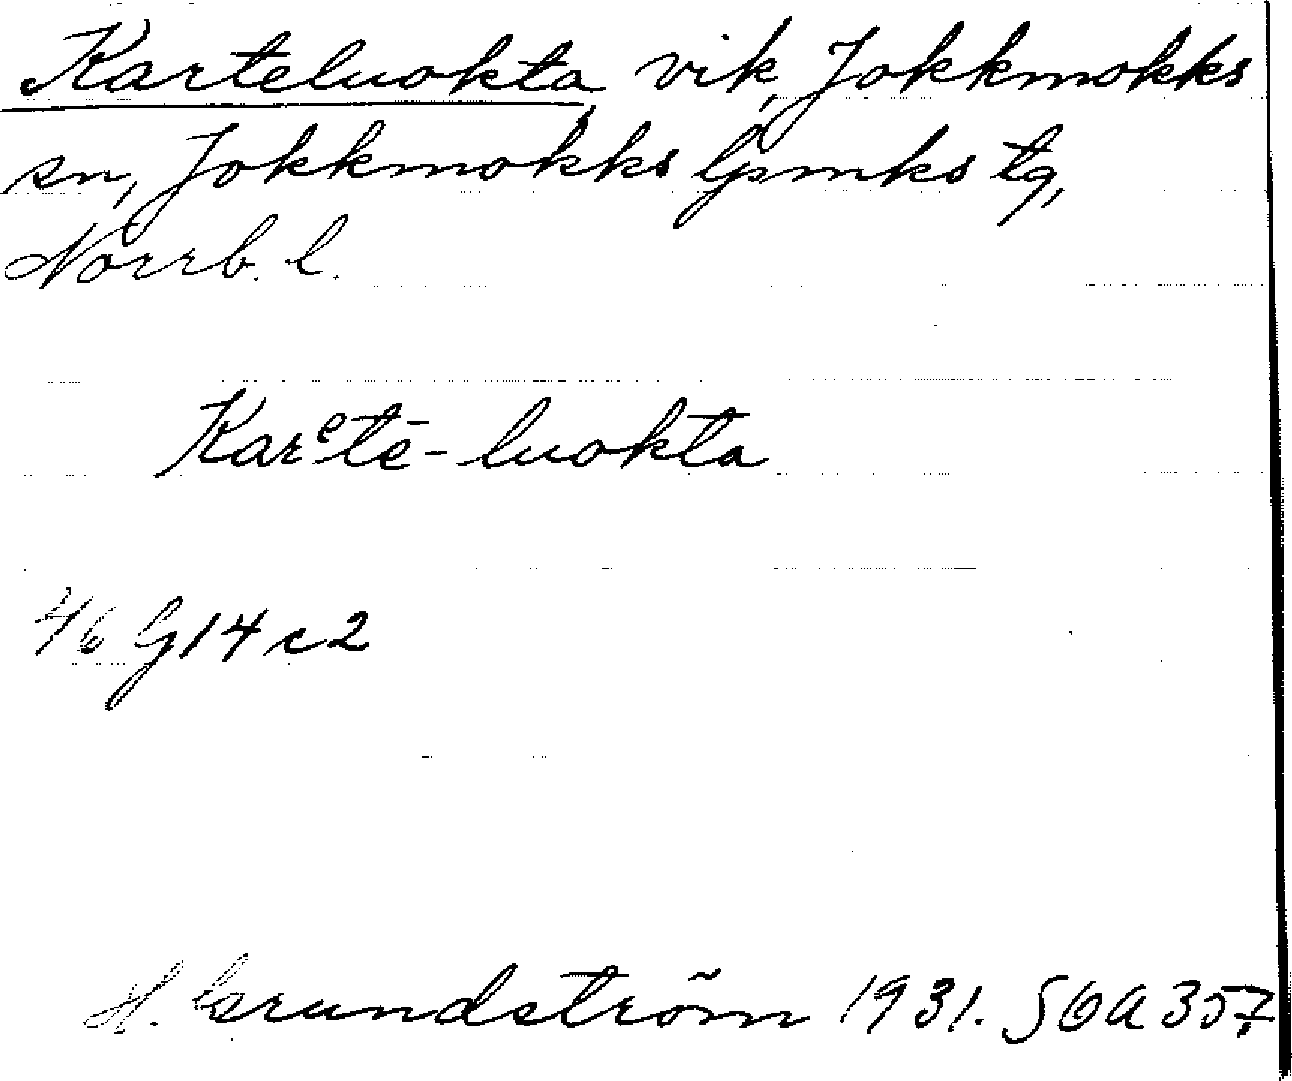 Karteluokta, vik, Jokkmokks
sn, Jokkmokks lpmks tg,
Norrb. l.
Karᵉtē-luokta
46 G 14 c 2
H. Grundström 1931. SOA 357